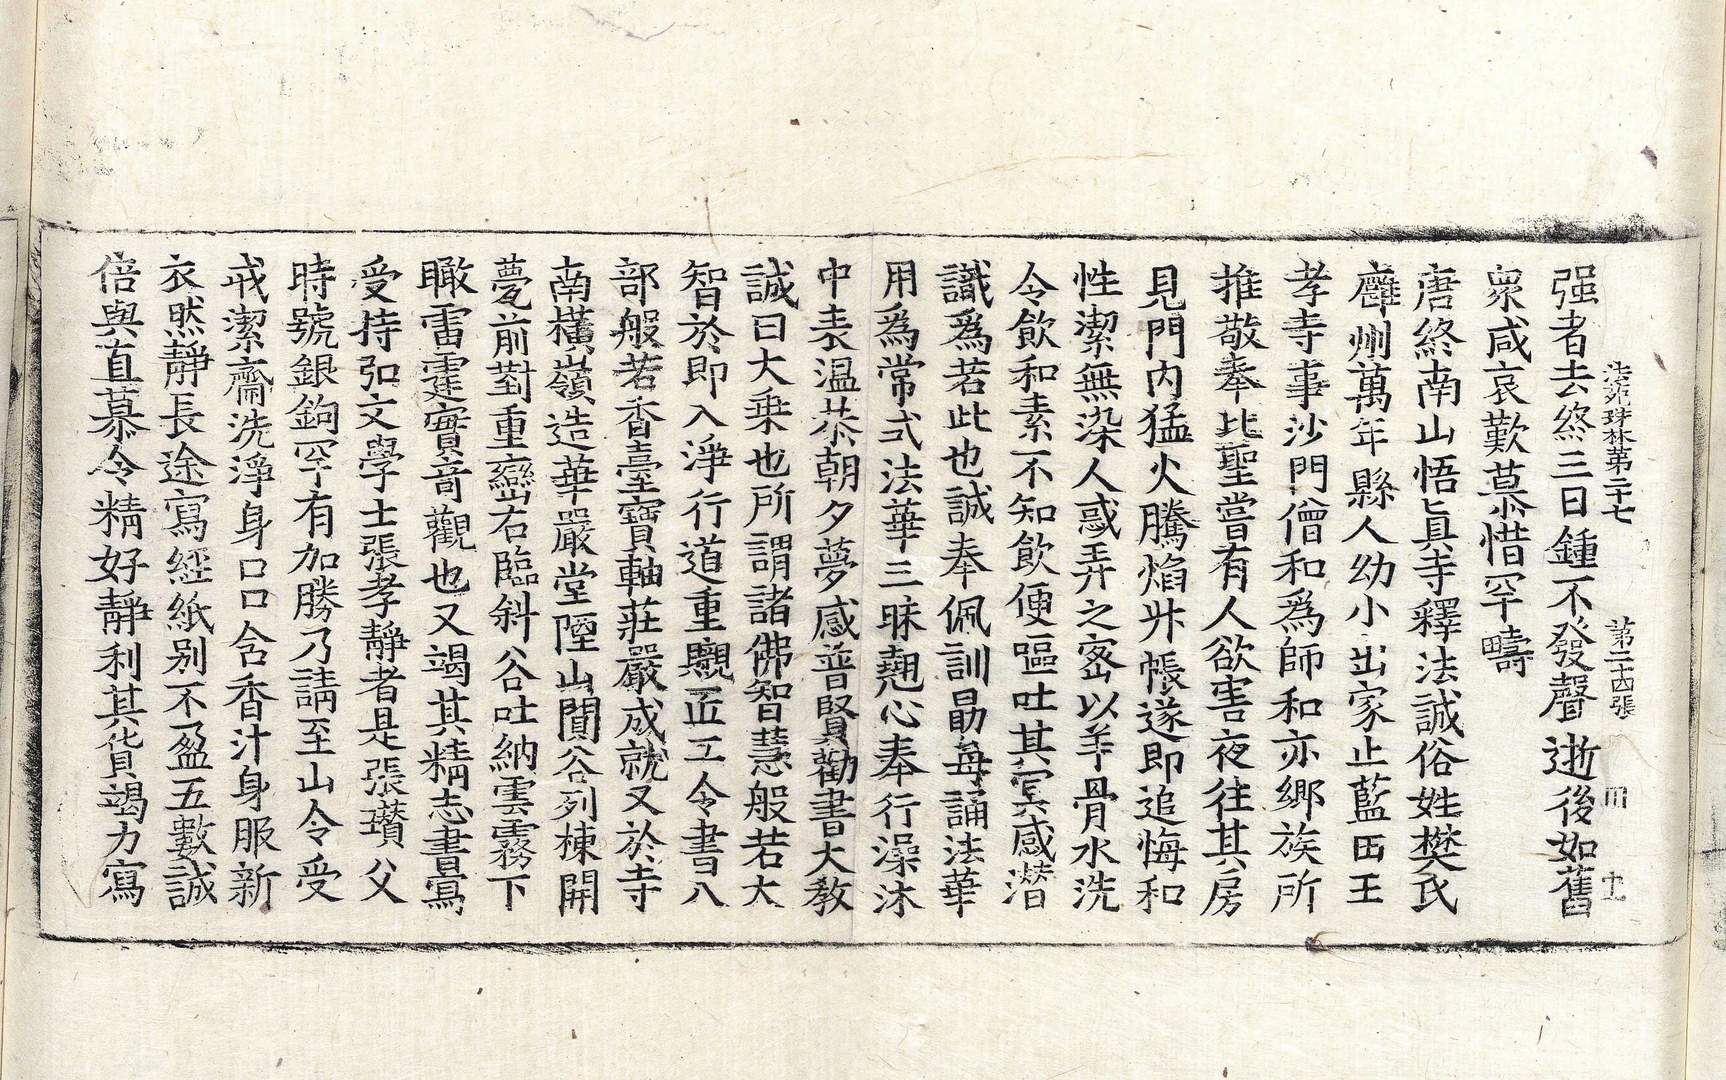 法苑珠林第二十七　第二十四張　冊　十九
强者去終三日鍾不發聲逝後如舊
衆咸哀歎慕惜罕疇
唐終南山悟眞寺釋法誠俗姓樊氏
雍州萬年縣人幼小出家止藍田王
孝寺事沙門僧和爲師和亦鄉族所
推敬奉比聖嘗有人欲害夜往其房
見門内猛火騰焰昇帳遂即追悔和
性潔無染人惑弄之密以羊骨水洗
令飲和素不知飲便嘔吐其冥感潜
識爲若此也誠奉佩訓勗每誦法華
用爲常式法華三昧翹心奉行澡沐
中表温恭朝夕夢感普賢勸書大教
誠曰大乘也所謂諸佛智慧般若大
智於即入淨行道重覿匠工令書八
部般若香臺寶軸莊嚴成就又於寺
南橫嶺造華嚴堂陻山闐谷列棟開
甍前對重巒右臨斜谷吐納雲霧下
瞰雷霆實竒觀也又竭其精志書寫
受持弘文學士張孝靜者是張瓉父
時號銀鉤罕有加勝乃請至山令受
戒潔齋洗淨身口口含香汁身服新
衣然靜長途寫經紙别不盈五數誠
倍與直慕令精好靜利其貨竭力寫